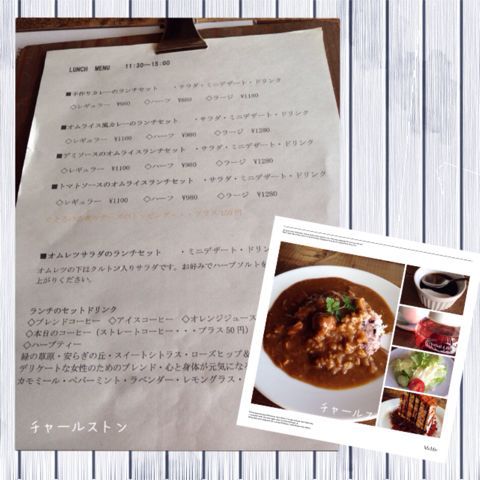 LUNCH MENU 11:30〜15:00
■手作りカレーのランチセット ・サラダ・ミニデザート・ドリンク
◇レギュラー ◇ハーフ ◇ラージ ¥1180
■オムライス風カレーのランチセット ・サラダ・ミニデザート・ドリンク
◇レギュラー ¥1100 ◇ハーフ ¥980 ◇ラージ ¥1280
■デミソースのオムライスランチセット ・サラダ・ミニデザート・ドリンク
◇レギュラー ¥1100 ◇ハーフ ¥980 ◇ラージ ¥1280
■トマトソースのオムライスランチセット ・サラダ・ミニデザート・ドリンク
◇レギュラー ¥1100 ◇ハーフ ¥980 ◇ラージ ¥1280
■オムレツサラダのランチセット ・ミニデザート・ドリン
オムレツの下はクルトン入りサラダです。お好みでハーブソルトを
上がりください。
ランチのセットドリンク
◇ブレンドコーヒー ◇アイスコーヒー ◇オレンジジュース
◇本日のコーヒー（ストレートコーヒー・・・プラス50円）
◇ハーブティー
緑の草原・安らぎの丘・スイートシトラス・ローズヒップ&
デリケートな女性のためのブレンド・心と身体が元気にな
カモミール・ペパーミント・ラベンダー・レモングラス・
チャールストン
チャールストン